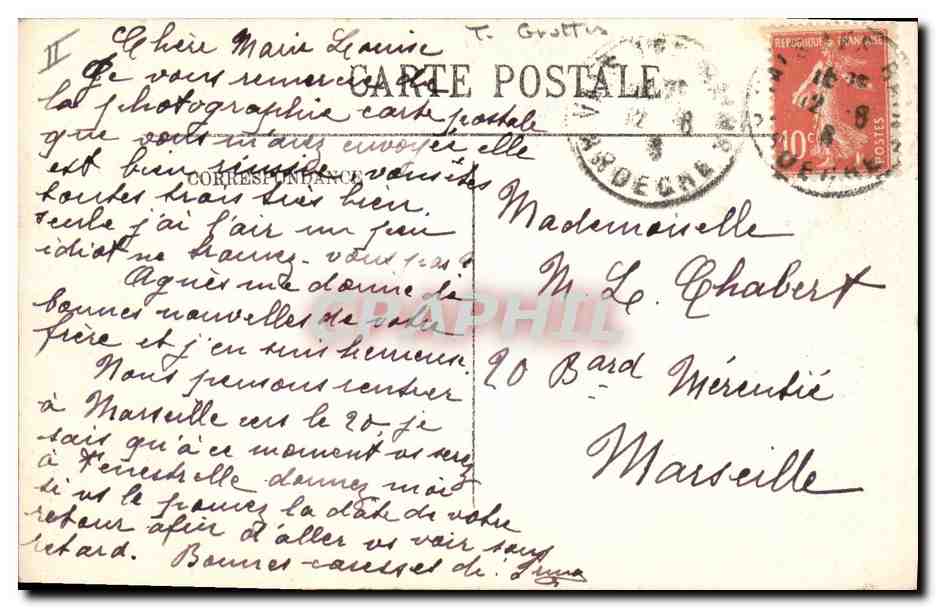 II
T. Grottes
CARTE POSTALE
CORRESPONDANCE
Chère Marie Louise
Je vous remercie de
la photographie carte postale
que vous m'avez envoyée, elle
est bien réussie, vous êtes
toutes trois très bien.
seule j'ai l'air un peu
idiot ne trouvez-vous pas ?
Agnès me donne de
bonnes nouvelles de votre
frère et j'en suis heureuse
Nous pensons rentrer
à Marseille vers le 20, je
sais qu'à ce moment vs serez
à Fenestrelle donnez moi
si vs le pouvez la date de votre
retour afin d'aller vs voir sans
retard. Bonnes caresses de
Mademoiselle
M. Le. Chabert
20 Bard Mérentié
Marseille
REPUBLIQUE FRANÇAISE
10c
POSTES
12 -8
ARDECHE
CPAPHIL